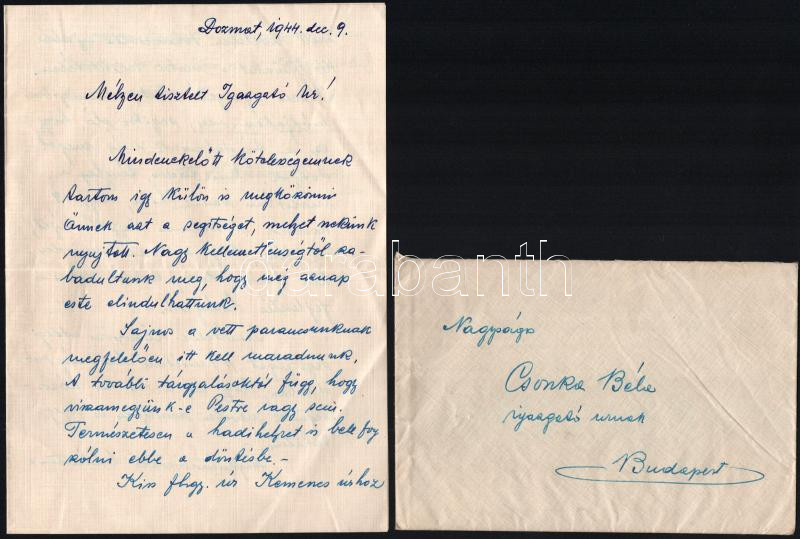 Dozmat, 1944. dec. 9.
Mélyen tisztelt Igazgató Úr!
Mindenekelőtt kötelességemnek
tartom így külön is megköszönni
Önnek azt a segítséget, melyet nekünk
nyujtott. Nagy kellemetlenségtől sza-
badultunk meg, hogy még aznap
este elindulhattunk.
Sajnos a vett parancsunknak
megfelelően itt kell maradnunk.
A további tárgyalásoktól függ, hogy
visszamegyünk-e Pestre vagy sem.
Természetesen a hadihelyzet is bele fog
szólni ebbe a döntésbe.-
Kiss fhgy. úr Kemenes úrhoz
Nagyságos
Csonka Béla
igazgató urnak
Budapest
darabanth